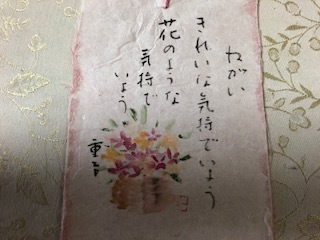 ねがい
きれいな気持でいよう
花のような
気持で
いよう
重吉